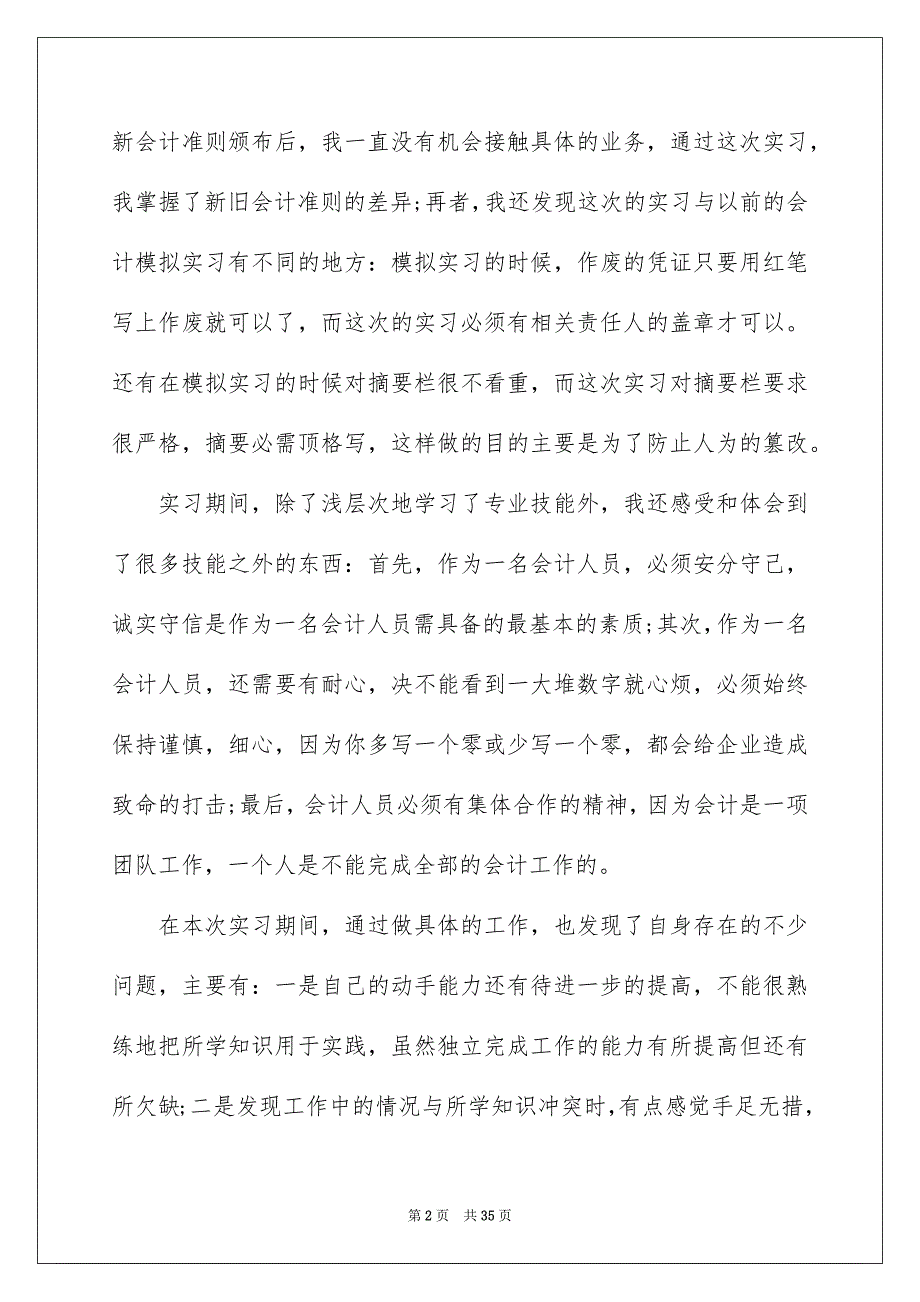 新会计准则颁布后，我一直没有机会接触具体的业务，通过这次实习，
我掌握了新旧会计准则的差异;再者，我还发现这次的实习与以前的会
计模拟实习有不同的地方：模拟实习的时候，作废的凭证只要用红笔
写上作废就可以了，而这次的实习必须有相关责任人的盖章才可以。
还有在模拟实习的时候对摘要栏很不看重，而这次实习对摘要栏要求
很严格，摘要必需顶格写，这样做的目的主要是为了防止人为的篡改。
实习期间，除了浅层次地学习了专业技能外，我还感受和体会到
了很多技能之外的东西：首先，作为一名会计人员，必须安分守己，
诚实守信是作为一名会计人员需具备的最基本的素质;其次，作为一名
会计人员，还需要有耐心，决不能看到一大堆数字就心烦，必须始终
保持谨慎，细心，因为你多写一个零或少写一个零，都会给企业造成
致命的打击;最后，会计人员必须有集体合作的精神，因为会计是一项
团队工作，一个人是不能完成全部的会计工作的。
在本次实习期间，通过做具体的工作，也发现了自身存在的不少
问题，主要有：一是自己的动手能力还有待进一步的提高，不能很熟
练地把所学知识用于实践，虽然独立完成工作的能力有所提高但还有
所欠缺;二是发现工作中的情况与所学知识冲突时，有点感觉手足无措，
第 2 页 共 35 页